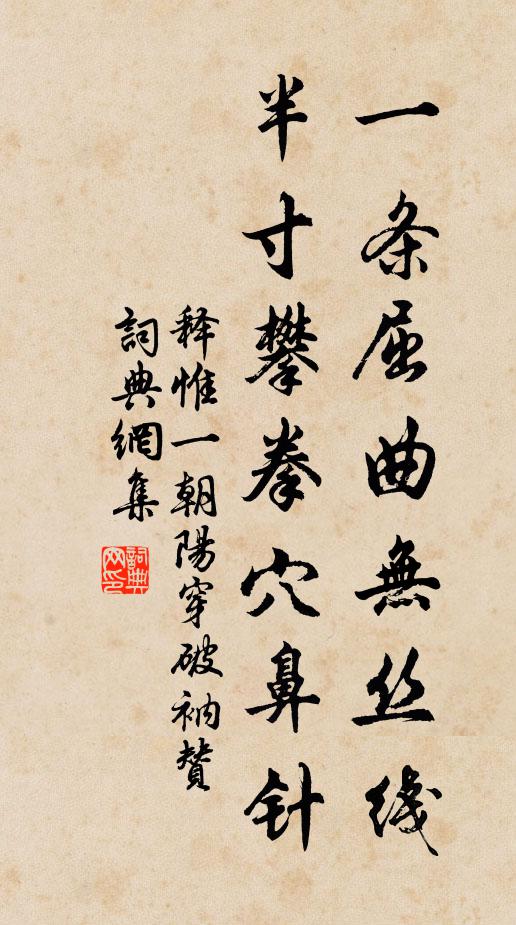 一条屈曲無丝綫
半寸攀拳穴鼻针
释惟一朝陽穿破衲贊
詞典網集
詞典网印